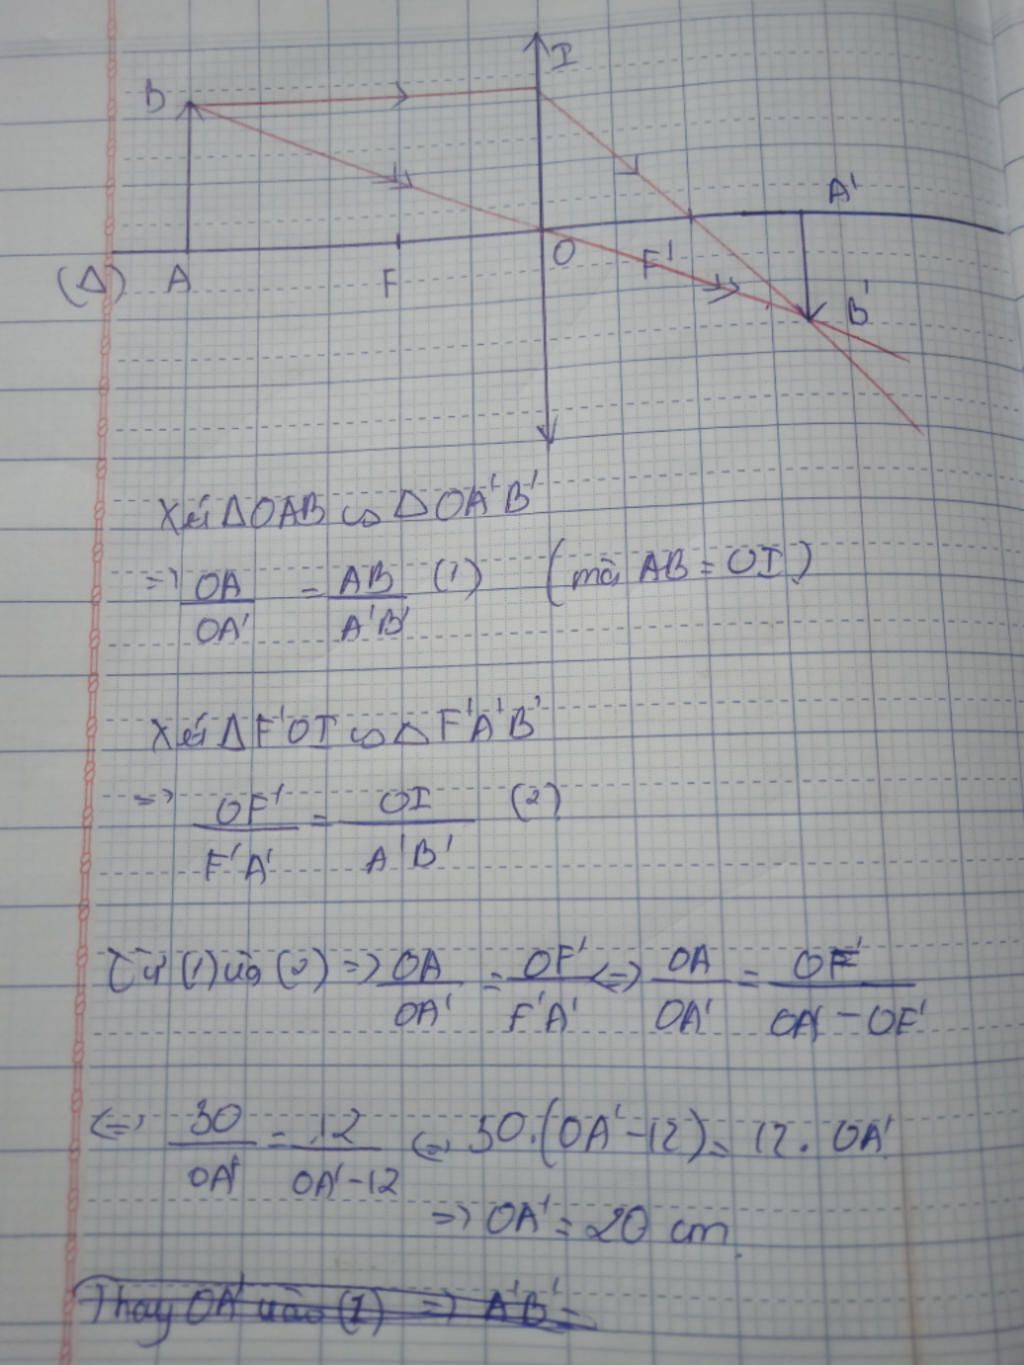 B
I
A'
(Δ) A F O F' B'
Xét ΔOAB ∽ ΔOA'B'
=> OA/OA' = AB/A'B' (1) (mà AB = OI)
Xét ΔF'OI ∽ ΔF'A'B'
=> OF'/F'A' = OI/A'B' (2)
Từ (1) và (2) => OA/OA' = OF'/F'A' <=> OA/OA' = OF'/OA' - OF'
<=> 30/OA' = 12/OA' - 12 <=> 30.(OA' - 12) = 12. OA'
=> OA' = 20 cm.
Thay OA' vào (1) => A'B' =